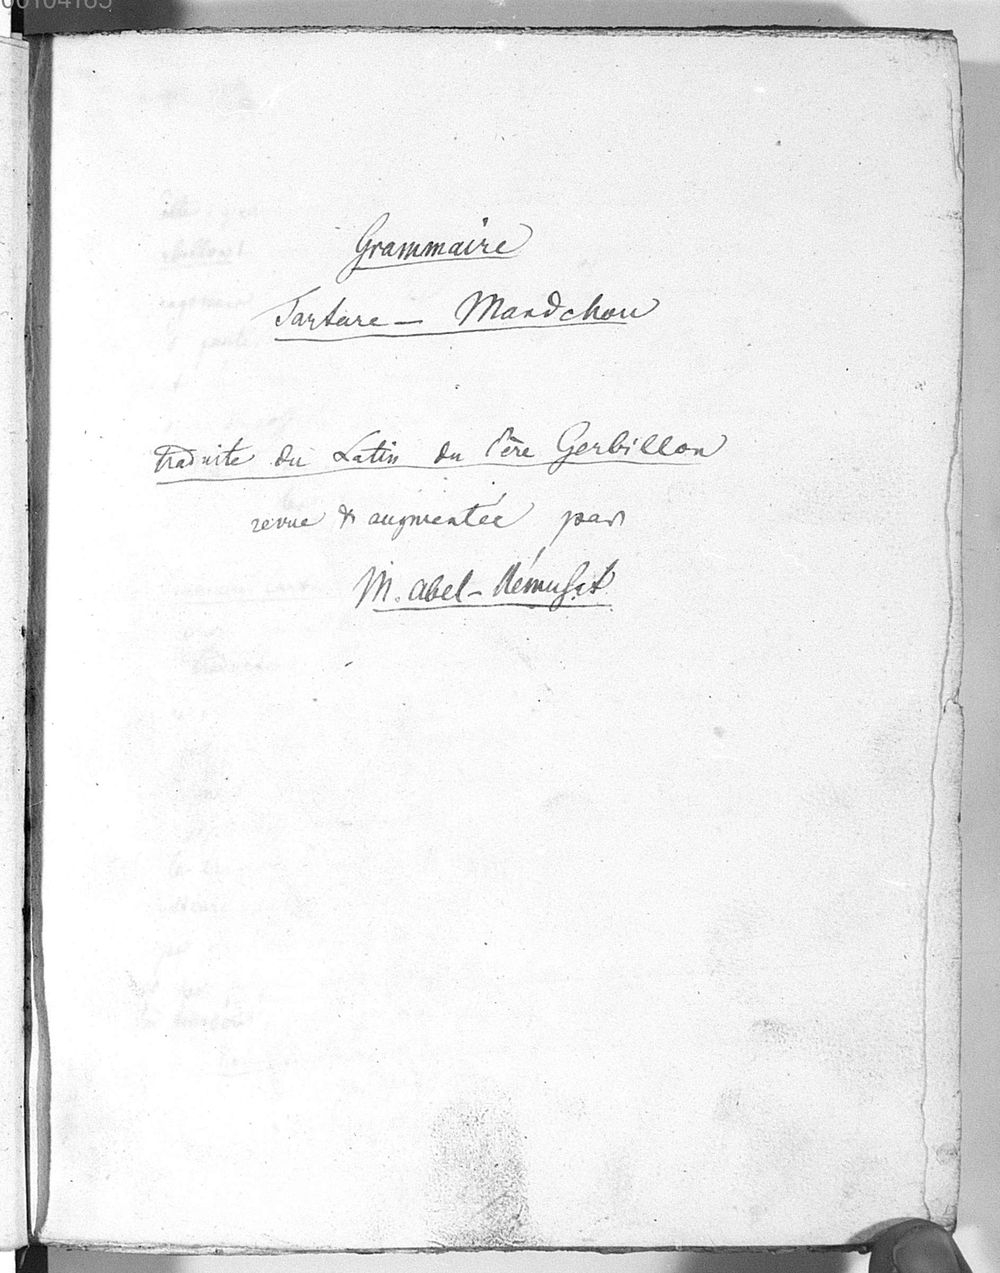 00104165
Grammaire
Tartare - Mandchou
traduite du Latin du Père Gerbillon
revue & augmentée par
M. Abel-Rémusat